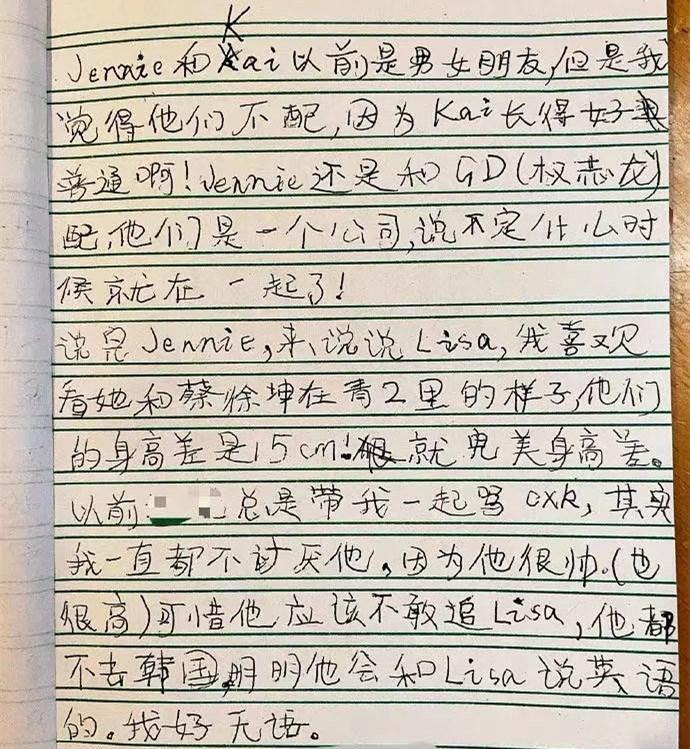 Jennie和Kai以前是男女朋友,但是我
觉得他们不配,因为Kai长得好
普通啊!Jennie还是和GD(权志龙)
配,他们是一个公司,说不定什么时
候就在一起了!
说完Jennie,来说说Lisa,我喜欢
看她和蔡徐坤在青2里的样子,他们
的身高差是15cm!就完美身高差。
以前总是带我一起骂cxk,其实
我一直都不讨厌他,因为他很帅.(也
很高)可惜他应该不敢追Lisa,他都
不去韩国,明明他会和Lisa说英语
的。我好无语。